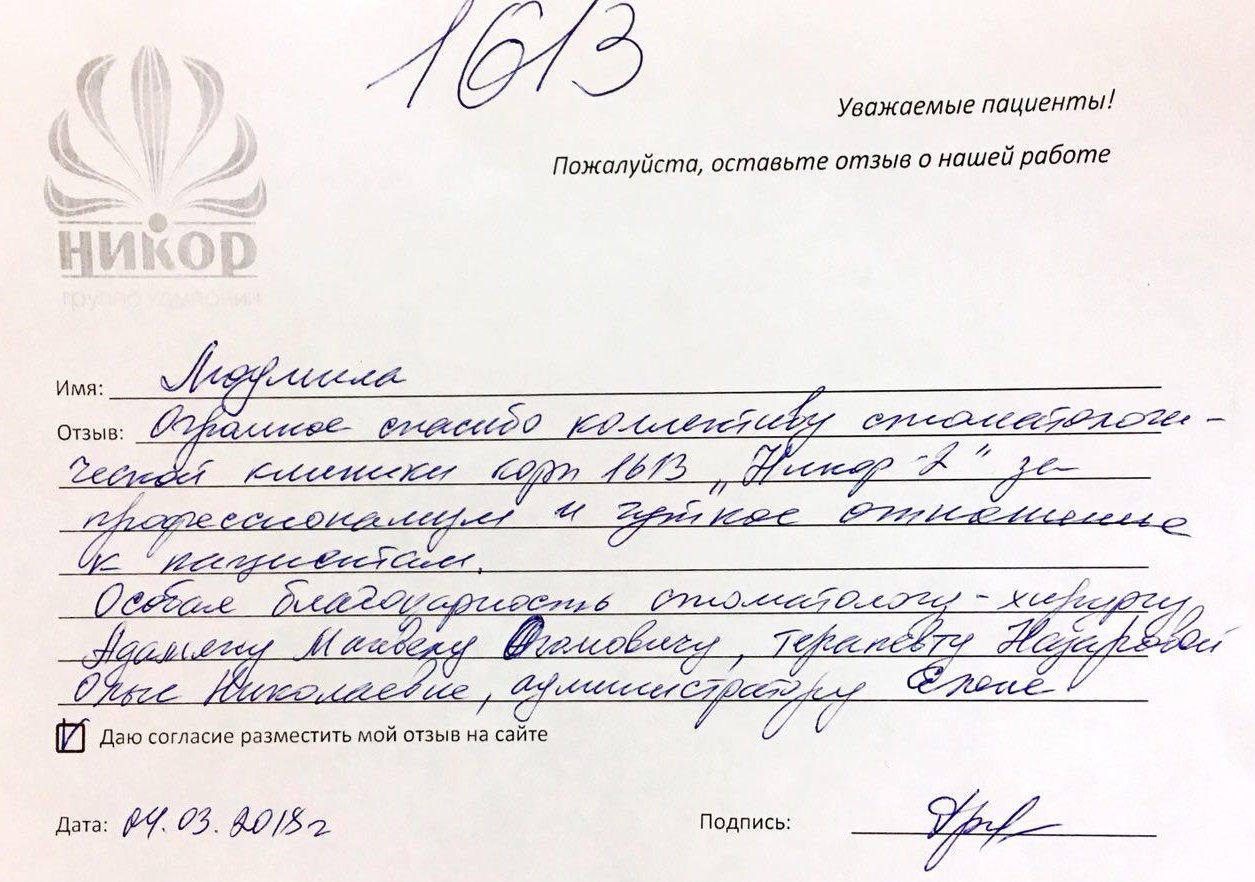 1613
Уважаемые пациенты!
Пожалуйста, оставьте отзыв о нашей работе
НИКОР
группа компаний
Имя: Людмила
Отзыв: Огромное спасибо коллективу стоматологи-
ческой клиники корп 1613 „Никор-2" за
профессионализм и чуткое отношение
к пациентам.
Особая благодарность стоматологу-хирургу
Адамяну Манвелу, терапевту Назаровой
Ольге Николаевне, администратору Елене
Даю согласие разместить мой отзыв на сайте
Дата: 04.03.2018г
Подпись: